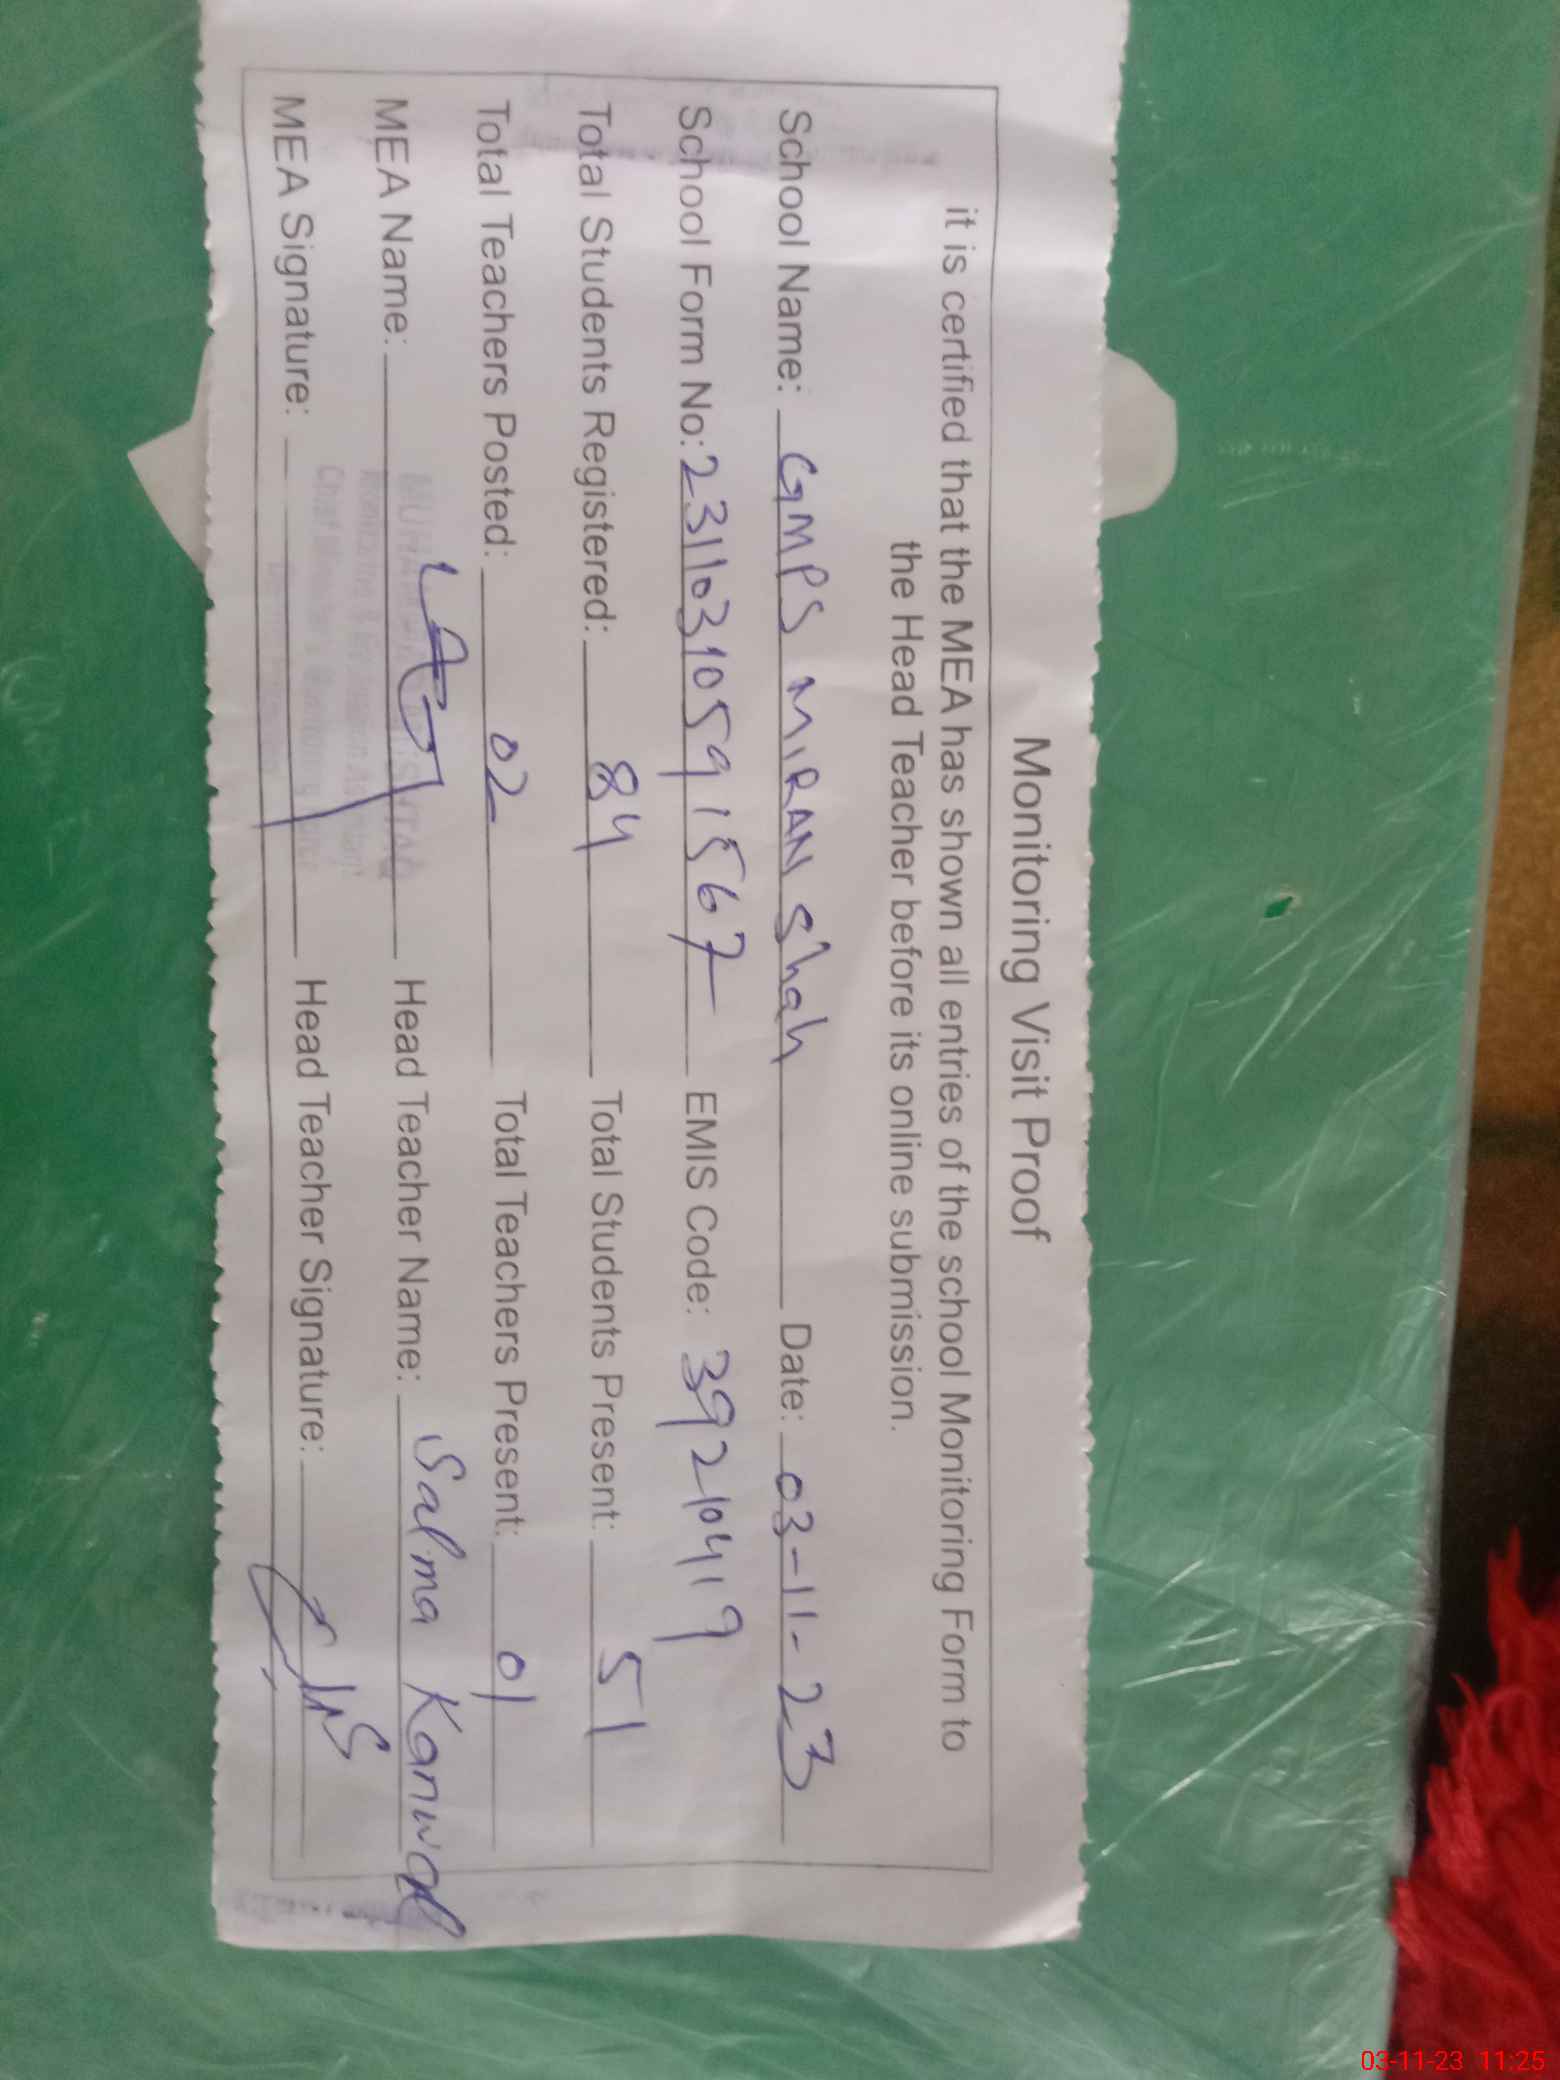 Monitoring Visit Proof
it is certified that the MEA has shown all entries of the school Monitoring Form to
the Head Teacher before its online submission.
School Name: GMPS MIRAN Shah Date: 03-11-23
School Form No: 23110310591567 EMIS Code: 39210419
Total Students Registered: 84 Total Students Present: 51
Total Teachers Posted: 02 Total Teachers Present: 01
MEA Name: Head Teacher Name: Salma Kanwal
MEA Signature: Head Teacher Signature:
03-11-23 11:25